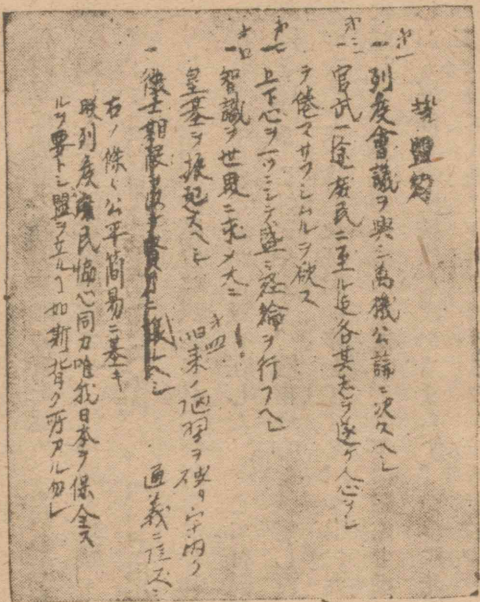 誓盟
第一
一 列侯會議ヲ興シ萬機公論ニ決スヘシ
第三
一 官武一途庶民ニ至ル迄各其志ヲ遂ケ人心ヲシ
テ倦マサラシムルヲ欲ス
一 上下心ヲ一ツニシテ盛ニ経綸ヲ行フヘシ
一 智識ヲ世界ニ求メ大ニ
皇基ヲ振起スヘシ
第四
旧来ノ陋習ヲ破リ宇内ノ
通義ニ従ヘシ
一 徴士期限
賢才ニ譲ルヘシ
右ノ條々公平簡易ニ基キ
朕列侯庶民協心同力唯我日本ヲ保全ス
ルヲ要トシ盟ヲ立ル事如斯背ク所アル勿レ